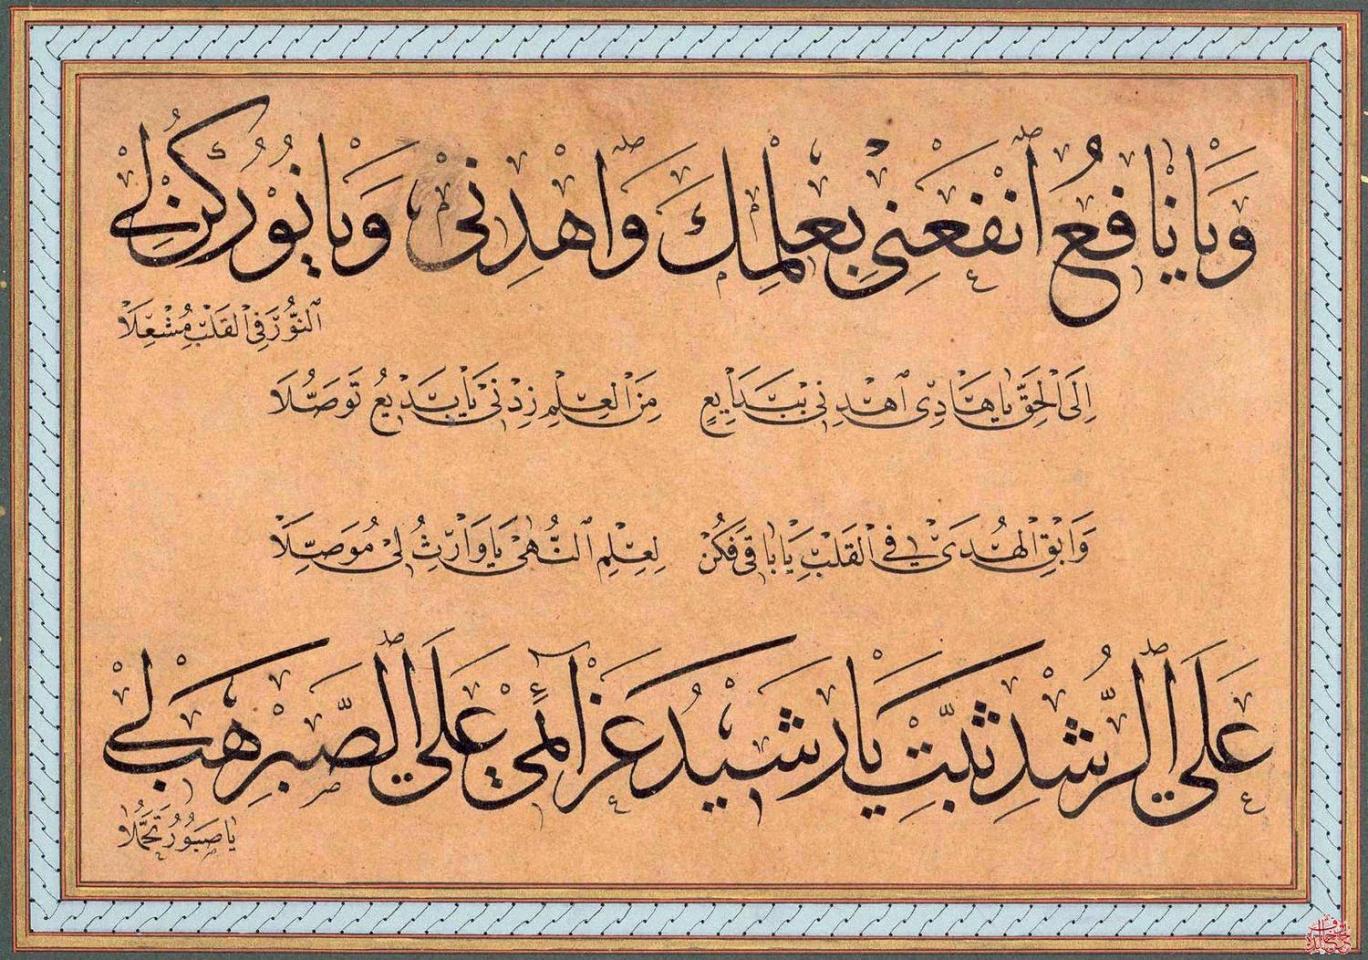 وَيَا نَافِعُ ٱنْفَعْنِي بِعِلْمِكَ وَٱهْدِنِي وَيَا نُورُ كُنْ لِي
ٱلنُّورَ فِي ٱلْقَلْبِ مُشْعِلَا
إِلَى ٱلْحَقِّ يَا هَادِي ٱهْدِنِي بِبَدَايِعٍ مِنَ ٱلْعِلْمِ زِدْنِي يَا بَدِيعُ تَوَصُّلَا
وَأَبْقِ ٱلْهُدَى فِي ٱلْقَلْبِ يَا بَاقِي فَكُنْ لِعِلْمِ ٱلنُّهَى يَا وَارِثُ لِي مُوَصِّلَا
عَلَى ٱلرُّشْدِ ثَبِّتْ يَا رَشِيدُ عَزَآئِمِي عَلَى ٱلصَّبْرِ هَبْ لِي
يَا صَبُورُ تَحَمُّلَا